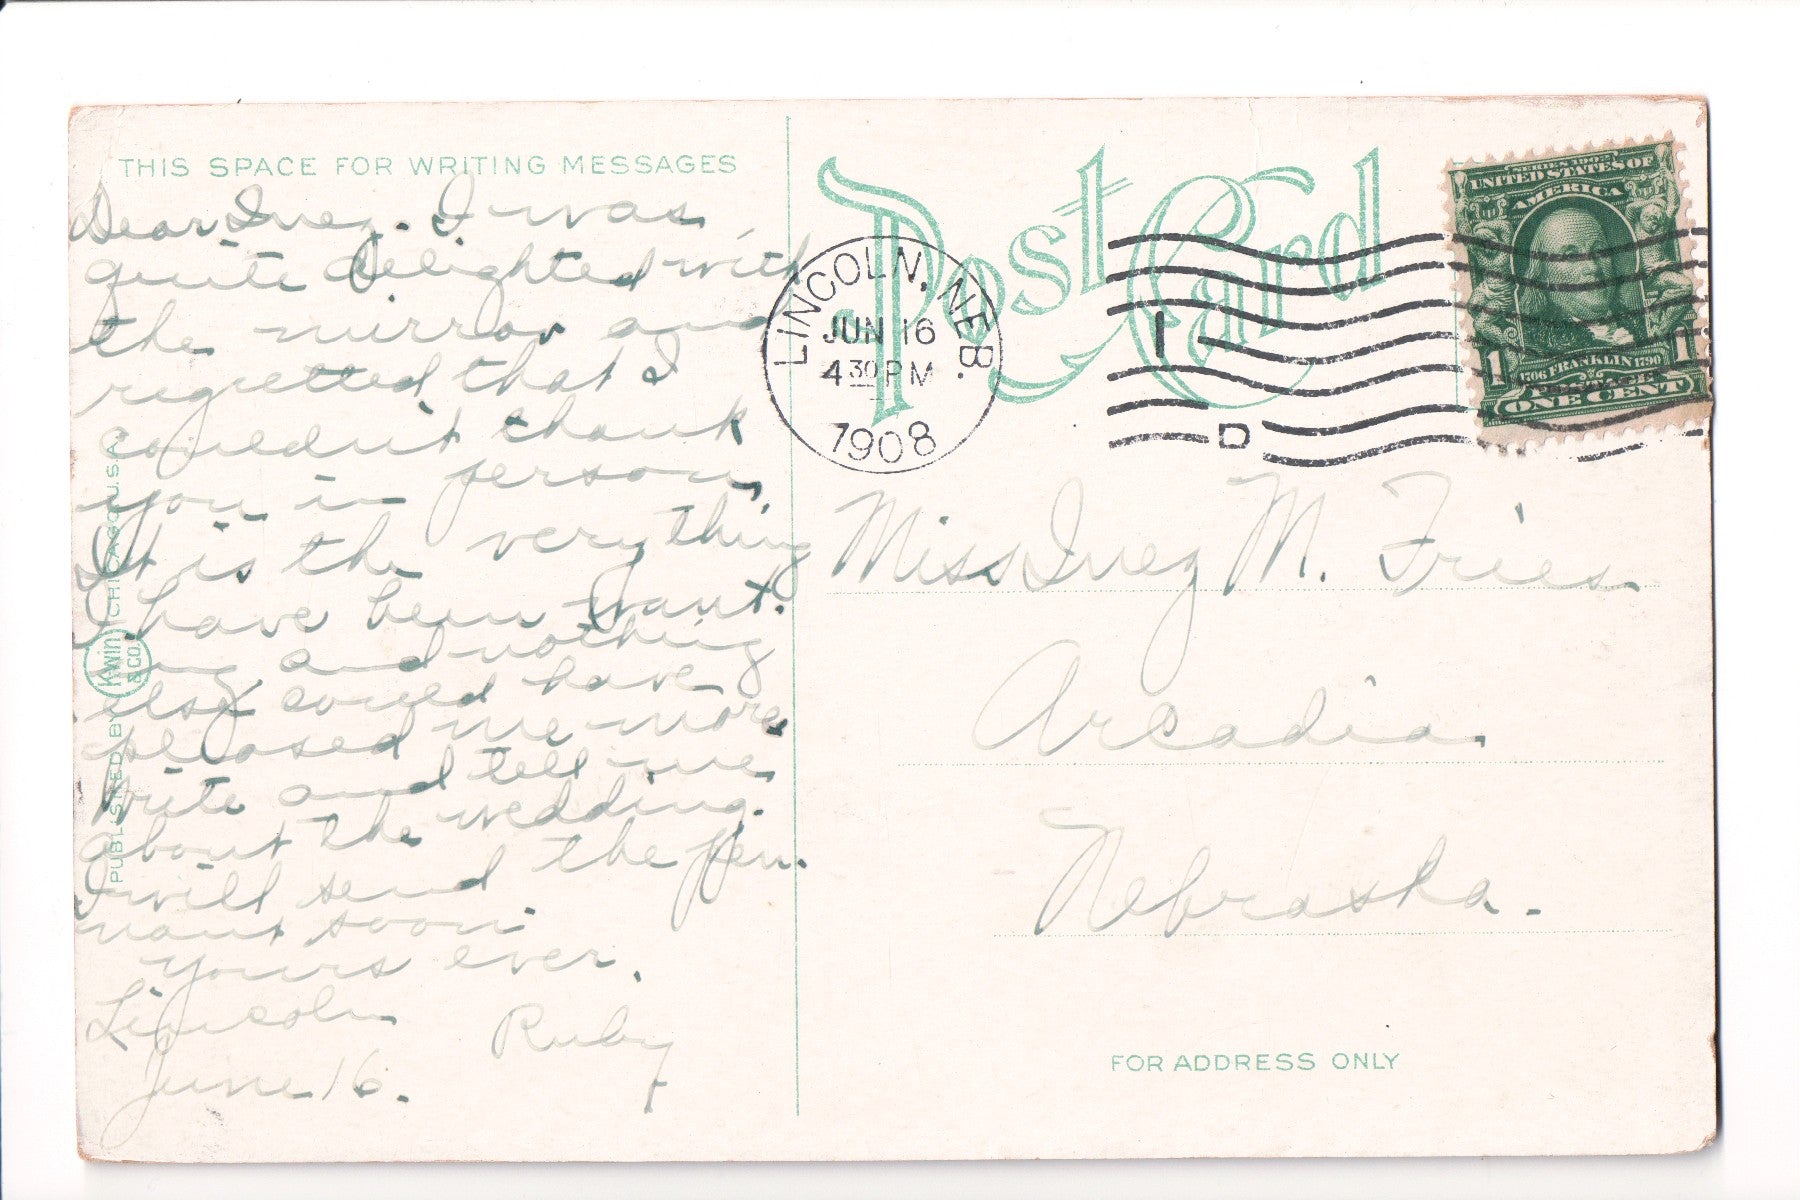 THIS SPACE FOR WRITING MESSAGES
Dear Inez. I was
quite delighted with
the mirror and
regretted that I
couldn't thank
you in person,
It is the very thing
I have been want.
ing and nothing
else could have
pleased me more,
Write and tell me
about the wedding.
I will send the pen.
nant soon.
yours ever.
Lincoln
Ruby
June 16.
PUBLISHED BY Kwin & CO. CHICAGO U.S.A.
Post Card
LINCOLN, NEB.
JUN 16
4 30 PM
1908
1
D
SERIES 1902
UNITED STATES OF
AMERICA
1706 FRANKLIN 1790
POSTAGE
1 1
ONE CENT
Miss Inez M. Fries
Arcadia
Nebraska.
FOR ADDRESS ONLY